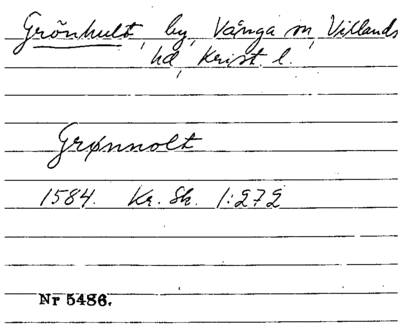 Grönhult, by, Vånga sn, Villands
hd, Krist. l.
Grønnolt
1584. Kr. Sk. 1:272
Nr 5486.